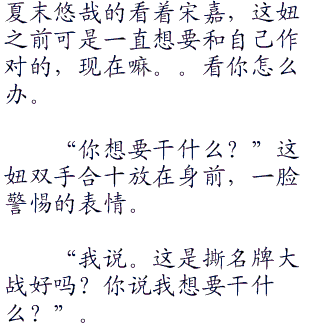 夏末悠哉的看着宋嘉，这妞
之前可是一直想要和自己作
对的，现在嘛。。看你怎么
办。
“你想要干什么？”这
妞双手合十放在身前，一脸
警惕的表情。
“我说。这是撕名牌大
战好吗？你说我想要干什
么？”。